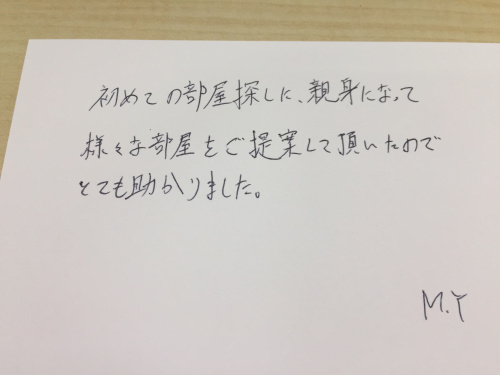 初めての部屋探しに、親身になって
様々な部屋をご提案して頂いたので
とても助かりました。
M.Y